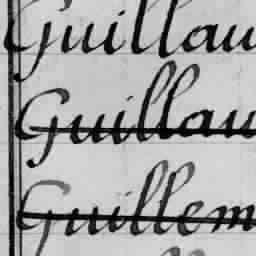 Guillau
Guillau
Guillem